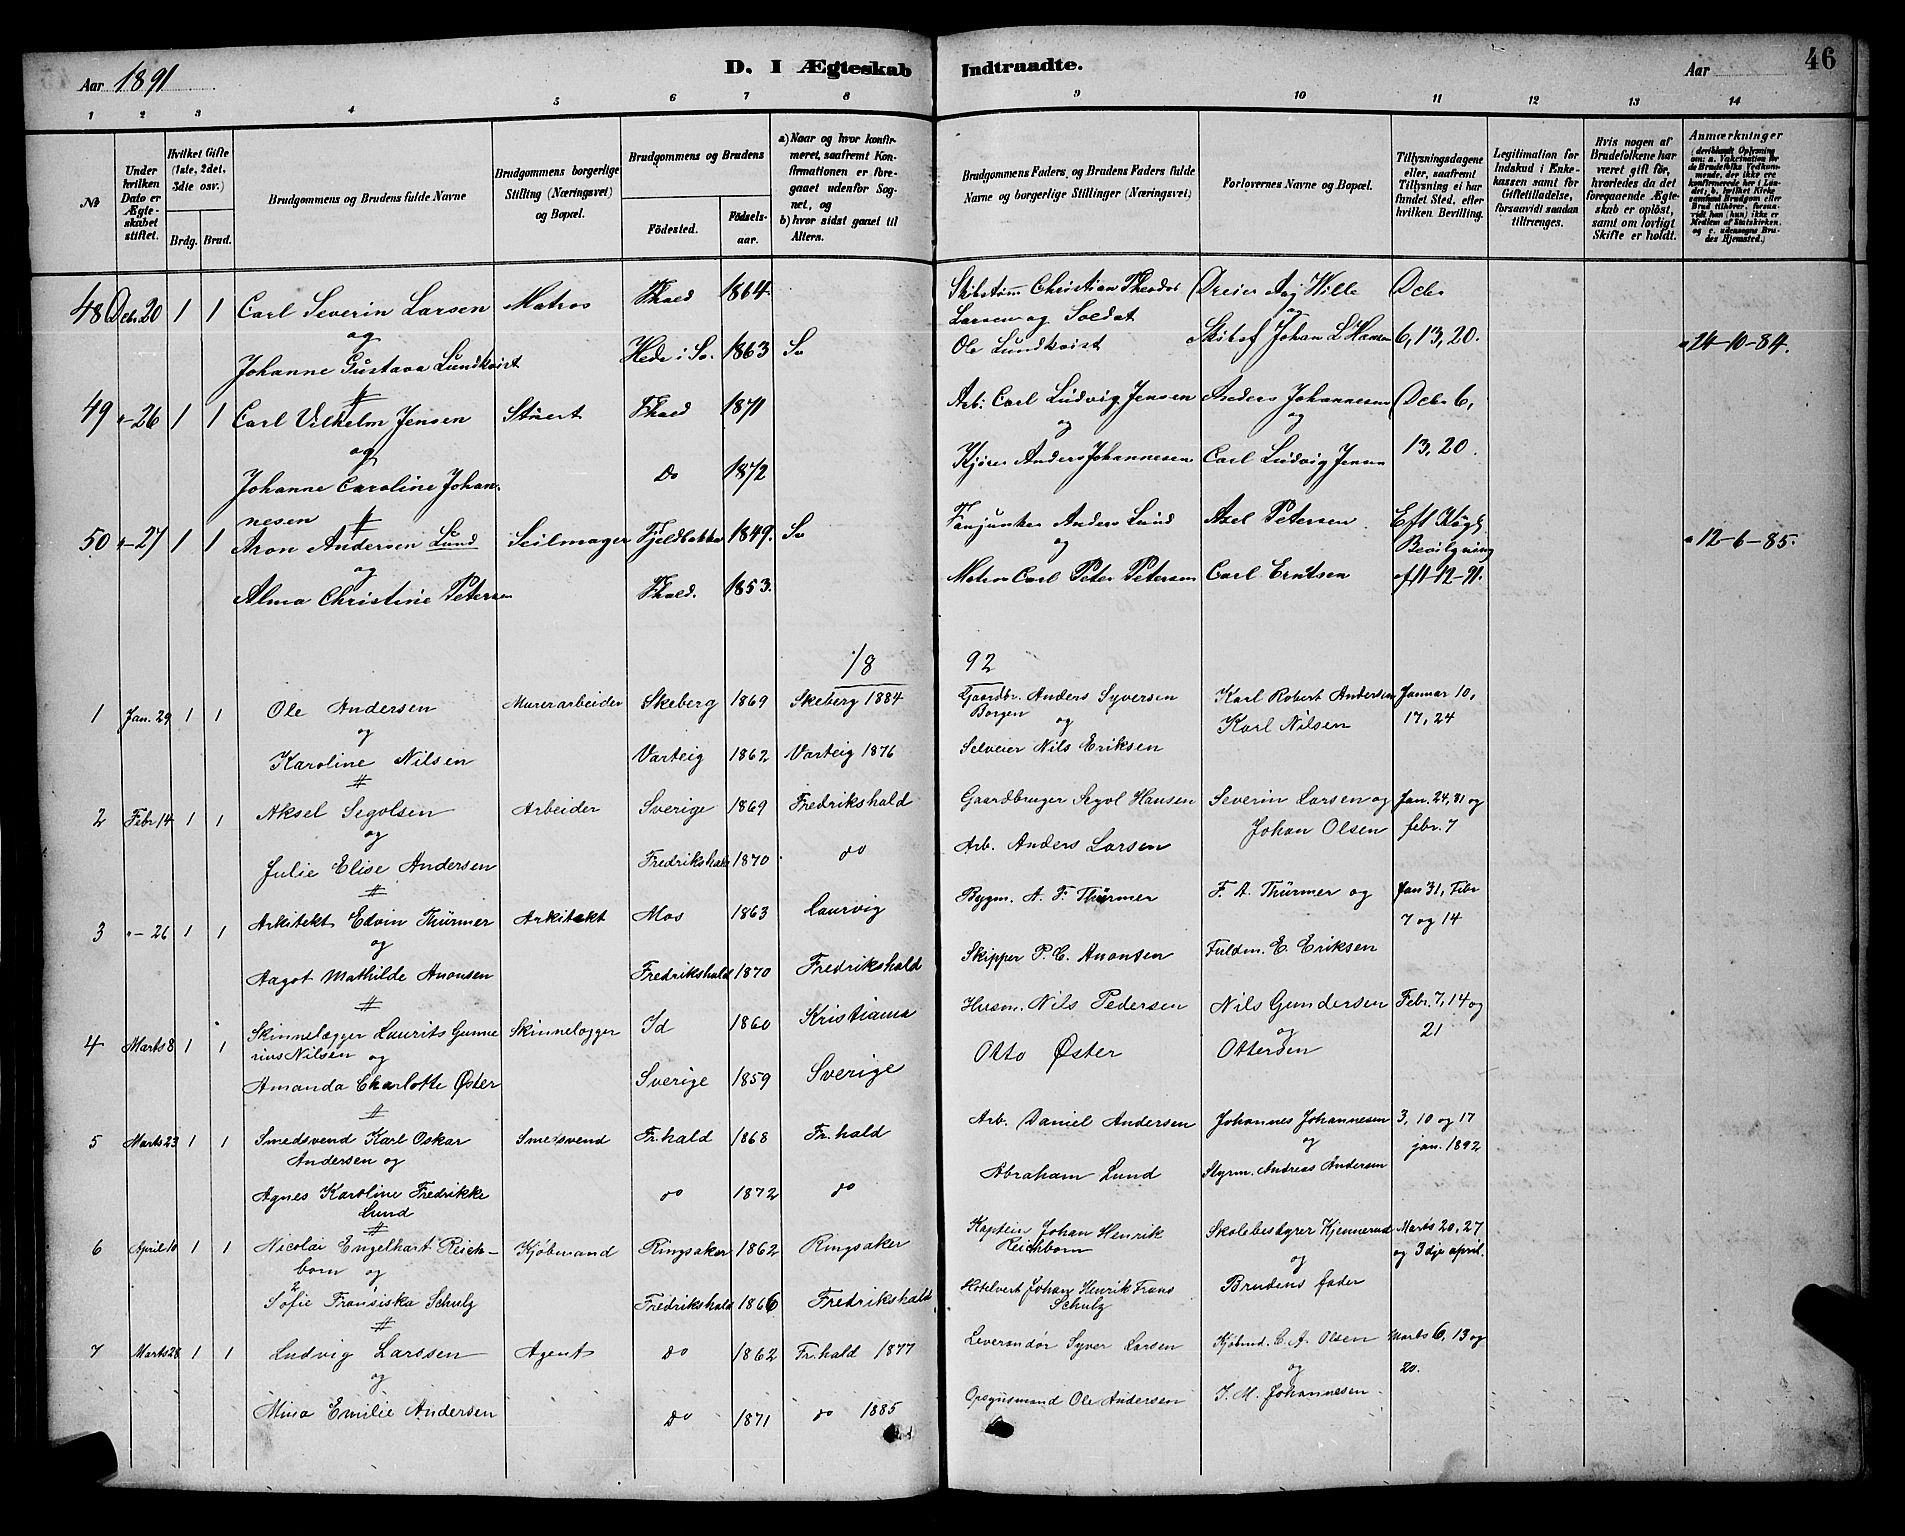 Aar 1891 D. I Ægteskab Indtraadte. Aar 46
1 2 3 4 5 6 7 8 9 10 11 12 13 14
No
Under hvilken Dato er Ægteskabet stiftet.
Hvilket Gifte (1ste, 2det, 3die osv.)
Brdg. Brud.
Brudgommens og Brudens fulde Navne
Brudgommens borgerlige Stilling (Næringsvei) og Bopæl.
Brudgommens og Brudens
Födested. Födselsaar.
a) Naar og hvor konfirmeret, saafremt Konfirmationen er foregaaet udenfor Sognet, og
b) hvor sidst gaaet til Alters.
Brudgommens Faders, og Brudens Faders fulde Navne og borgerlige Stillinger (Næringsvei)
Forlovernes Navne og Bopæl.
Tillysningsdagene eller, saafremt Tillysning ei har fundet Sted, efter hvilken Bevilling.
Legitimation for Indskud i Enkekassen samt for Giftetilladelse, forsaavidt saadan tiltrænges.
Hvis nogen af Brudefolkene har været gift för, hvorledes da det foregaaende Ægteskab er oplöst, samt om lovligt Skifte er holdt.
Anmærkninger
(deriblandt Oplysning om: a. Vakcination for de Brudefolks Vedkommende, der ikke ere konfirmerede her i Landet; b. hvilket Kirkesamfund Brudgom eller Brud tilhörer, forsaavidt han (hun) ikke er Medlem af Statskirken. og c. udensogns Brudes Hjemsted.)
48 Debr 20 1 1 Carl Severin Larsen Matros Fhald 1864. Skibstøm̅ Christian Theodor Dreier Aag Wille Debr
og Larsen og Soldat og
Johanne Gustava Lundkvist Hede i Sv. 1863 Sv Ole Lundkvist Skibsf Johan L Hansen 6, 13, 20. a 24-10-84.
49 "-26 1 1 Carl Vilhelm Jensen Stuert Fhald 1871 Arb: Carl Ludvig Jensen Anders Johannesen Debr 6,
og og og 13, 20.
Johanne Caroline Johan- Do 1872 Kjører Anders Johannesen Carl Ludvig Jensen
nesen
50 "-27 1 1 Aron Andersen Lund Seilmager Fjeldbakka 1849. Sv Fanjunker Anders Lund Axel Petersen Eft Kögl a 12-6-85.
og og Bevilgning
Alma Christine Petersen Fhald. 1853. Matros Carl Peter Petersen Carl Erntsen af 11-12-91.
18 92
1 Jan. 29 1 1 Ole Andersen Murerarbeider Skeberg 1869 Skeberg 1884 Gaardbr. Anders Syversen Karl Robert Andersen Januar 10,
og Borgen og Karl Nilsen 17, 24
Karoline Nilsen Varteig 1862 Varteig 1876 Selveier Nils Eriksen
2 Febr 14 1 1 Aksel Segolsen Arbeider Sverige 1869 Fredrikshald Gaardbruger Segol Hansen Severin Larsen og Jan. 24, 31 og
og Johan Olsen febr. 7
Julie Elise Andersen Fredrikshald 1870 do Arb. Anders Larsen
3 "-26 1 1 Arkitekt Edvin Thürmer Arkitekt Mos 1863 Laurvig Bygm. A. F. Thürmer F. A. Thürmer og Jan 31, Febr
og 7 og 14
Aagot Mathilde Anonsen Fredrikshald 1870 Fredrikshald Skipper P. C. Anonsen Fuldm. E. Eriksen
4 Marts 8 1 1 Skinnelægger Laurits Gunne Skinnelægger Id 1860 Kristiania Husm. Nils Pedersen Nils Gundersen Febr. 7, 14 og
rius Nilsen og og 21
Amanda Charlotte Øster Sverige 1859 Sverige Otto Øster Ottersen
5 Marts 23 1 1 Smedsvend Karl Oskar Smedsvend Fr.hald 1868 Fr.hald Arb. Daniel Andersen Johannes Johannesen 3, 10 og 17
Andersen og og jan. 1892
Agnes Karoline Fredrikke do 1872 do Abraham Lund Styrm. Andreas Andersen
Lund
6 April 10 1 1 Nicolai Engelhart Reich- Kjøbmand Ringsaker 1862 Ringsaker Kaptein Johan Henrik Skolebestyrer Kjennerud Marts 20, 27
born og Reichborn og og 3dje april.
Sofie Fransiska Schulz Fredrikshald 1866 Fredrikshald Hotelvert Johan Henrik Frans Brudens fader
Schulz
7 Marts 28 1 1 Ludvig Larssen Agent do 1862 Fr.hald 1877 Leverandør Syver Larsen Kjøbmd. C. A. Olsen Marts 6, 13 og
og og 20.
Mina Emilie Andersen do 1871 do 1885 Opsynsmand Ole Andersen J. M. Johannesen